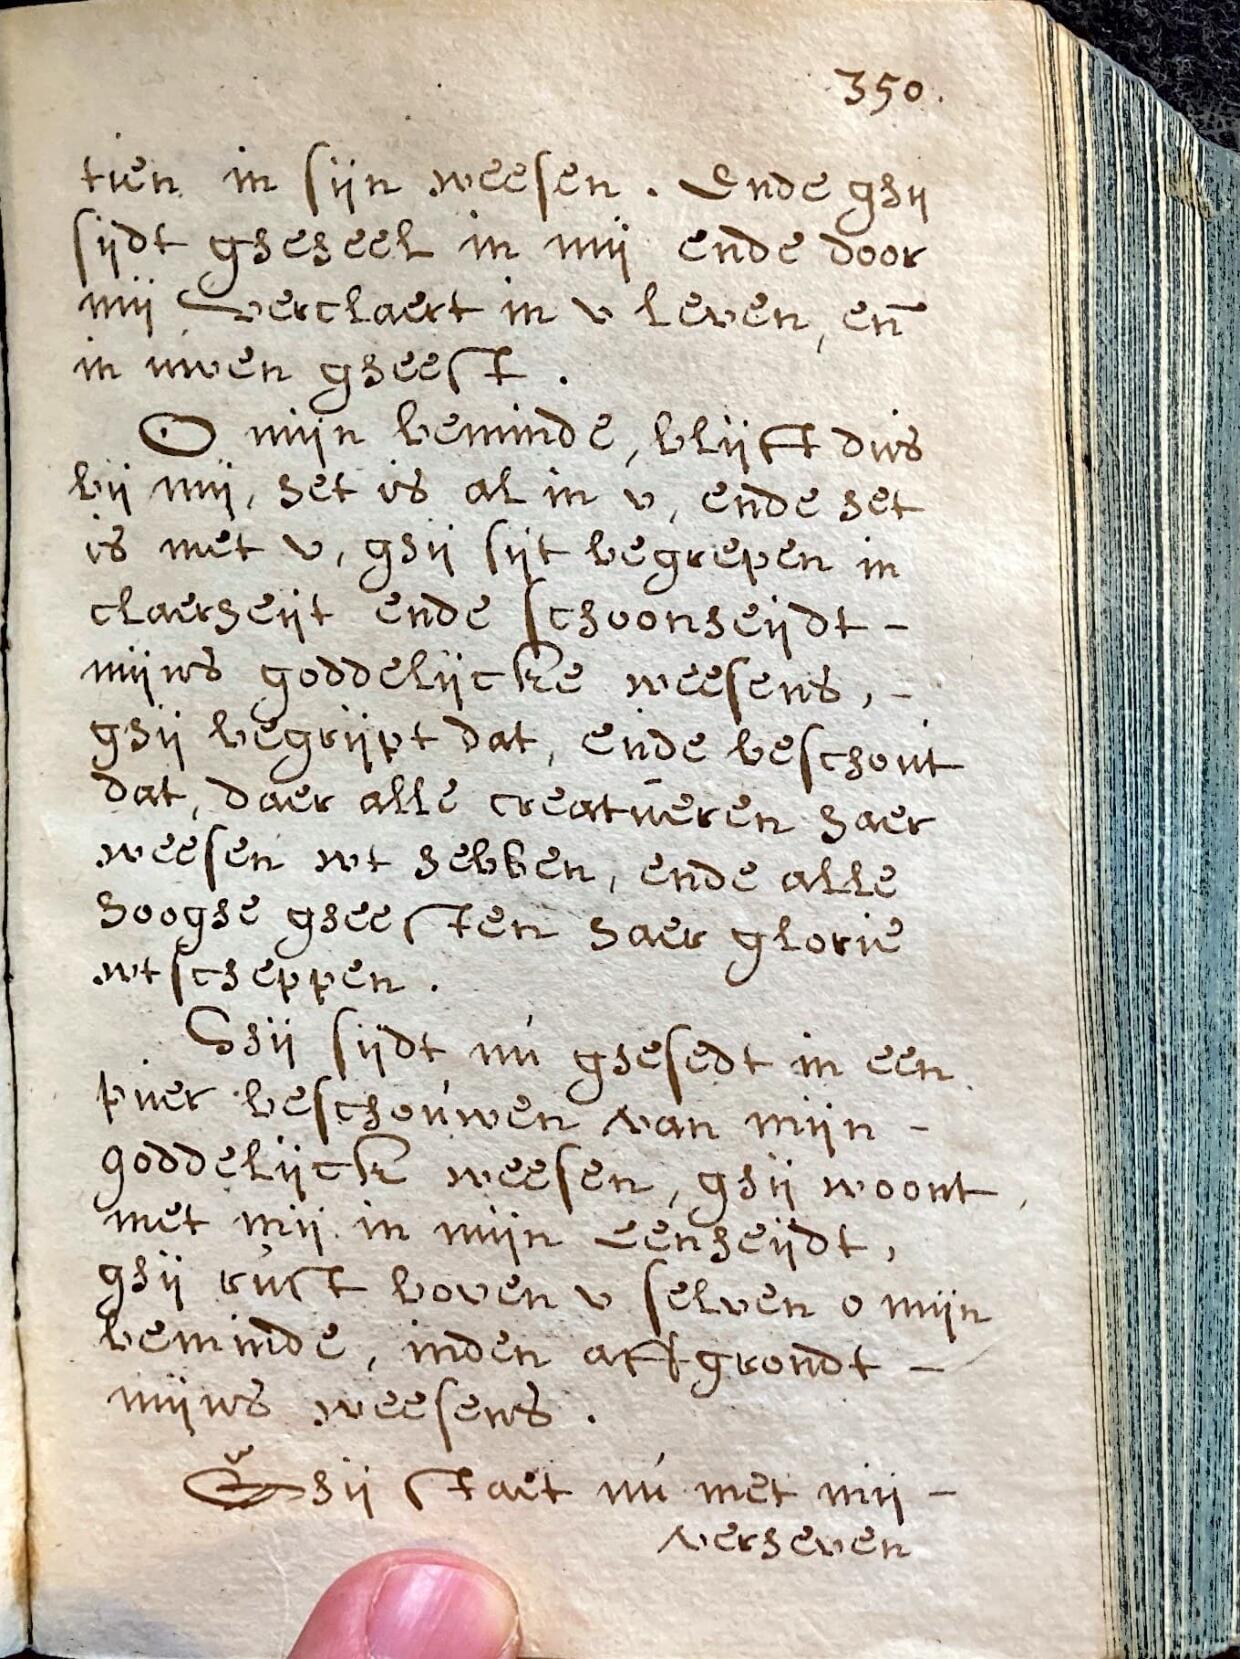 350.
tien in sijn weesen. Ende ghij
sijdt gheheel in mij ende door
mij verclaert in v leven, en̄
in uwen gheest.
O mijn beminde, blijft dus
bij mij, het is al in v, ende het
is met v, ghij sijt begrepen in
claerheijt ende schoonheijdt -
mijns goddelijcke weesens, -
ghij begrijpt dat, ende beschout
dat, daer alle creatueren haer
weesen wt hebben, ende alle
hooghe gheesten haer glorie
wtscheppen.
Ghij sijdt nú ghesedt in een
puer beschouwen van mijn -
goddelijck weesen, ghij woont
met mij in mijn eenheijdt,
ghij rúst boven v selven o mijn
beminde, inden affgrondt -
mijns weesens.
Ghij staet nú met mij -
verheven